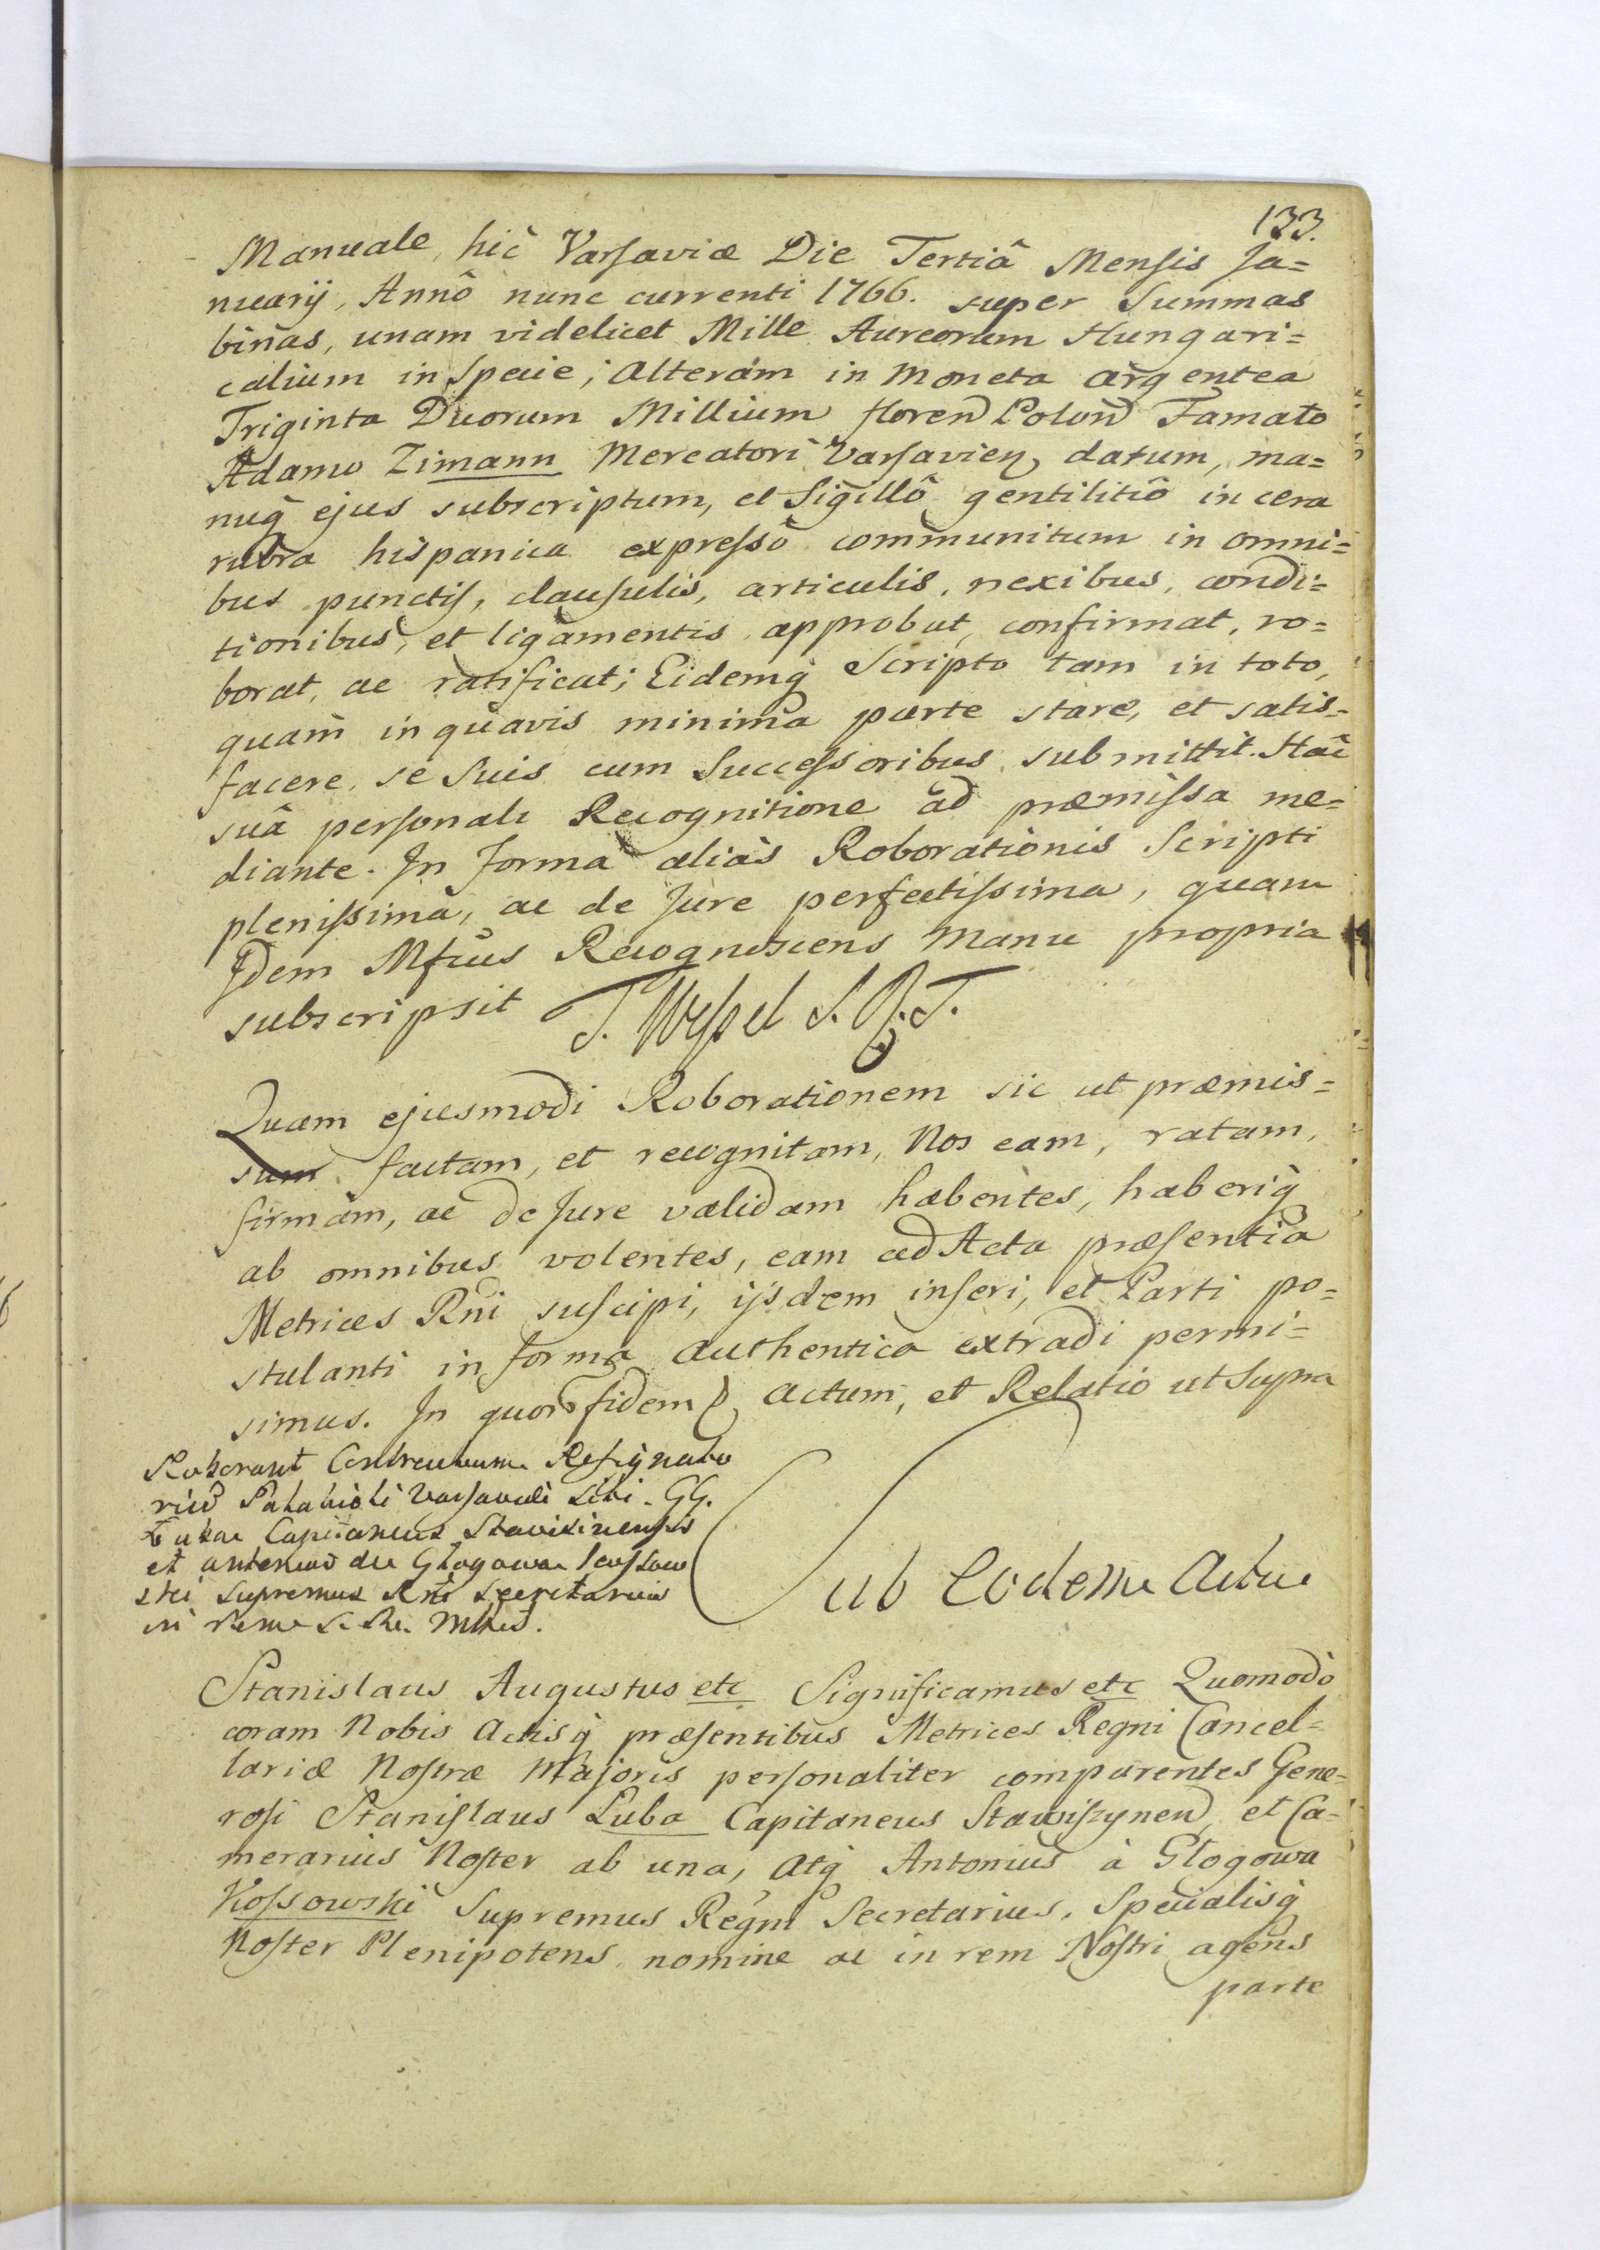 133.
Manuale, hîc Varsaviæ Die Tertiâ Mensis Ja=
nuarij, Annô nunc currenti 1766. super Summas
binas, unam videlicet Mille Aureorum Hungari=
calium in Specie; Alteram in Moneta argentea
Triginta Duorum Millium floren Polon Famato
Adamo Zimann Mercatori Varsavien, datum, ma=
nuq ejus subscriptum, et Sigillô gentilitiô in cera
rubra hispanica expressô communitum in omni=
bus punctis, clausulis, articulis, nexibus, condi=
tionibus, et ligamentis approbat, confirmat, ro=
borat, ac ratificat; Eidemq Scripto tam in toto,
quam in quavis minima parte stare, et satis=
facere, se Suis cum Successoribus submittit. Hâc
suâ personali Recognitione ad præmissa me=
diante. In forma aliàs Roborationis Scripti
plenissima, ac de Jure perfectissima, quam
Idem Mfcus Recognoscens Manu propria
subscripsit T. Wessel
Quam ejusmodi Roborationem sic ut præmis=
sum factam, et recognitam, Nos eam, ratam,
firmam, ac de Jure validam habentes, haberiq
ab omnibus volentes, eam ad Acta præsentia
Metrices Rni suscipi, ijsdem inseri, et Parti po=
stulanti in forma authentica extradi permi=
simus. In quor fidem Actum, et Relatio ut Supra
Roborant Contractum Resignato
rium Palatioli
Capitaneus
et Glogowa Kossow
ski Supremus Secretarius
in rem
Sub Eodem Actu
Stanislaus Augustus etc Significamus etc Quomodò
coram Nobis Actisq præsentibus Metrices Regni Cancel=
lariæ Nostræ Majoris personaliter comparentes Gene=
rosi Stanislaus Luba Capitaneus Stawiszynen, et Ca=
merarius Noster ab una, Atq Antonius à Glogowa
Kossowski Supremus Regni Secretarius, Specialisq
Noster Plenipotens, nomine ac in rem Nostri agens
parte